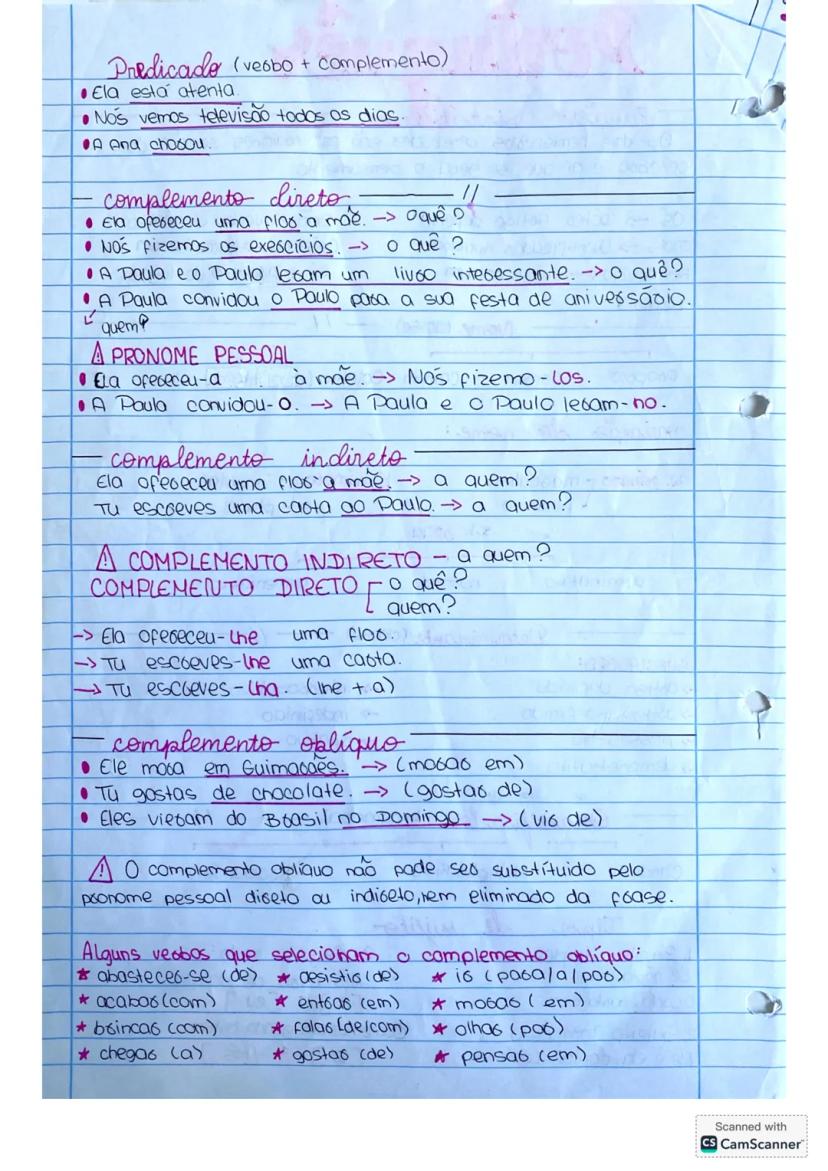 Predicado (verbo + complemento)
• Ela está atenta
• Nós vemos televisão todos os dias.
• A Ana chorou.
complemento direto
• Ela ofereceu uma flor à mãe. -> O quê?
• Nós fizemos os exercícios. -> o quê?
• A Paula e o Paulo leram um livro interessante. -> o quê?
• A Paula convidou o Paulo para a sua festa de aniversário.
quem?
⚠ PRONOME PESSOAL
• Ela ofereceu-a à mãe. -> Nós fizemo-los.
• A Paula convidou-o. -> A Paula e o Paulo leram-no.
complemento indireto
Ela ofereceu uma flor à mãe. -> a quem?
Tu escreves uma carta ao Paulo. -> a quem?
⚠ COMPLEMENTO INDIRETO - a quem?
COMPLEMENTO DIRETO [ o quê?
quem?
-> Ela ofereceu-lhe uma flor.
-> Tu escreves-lhe uma carta.
-> Tu escreves-lha. (lhe + a)
complemento oblíquo
• Ele mora em Guimarães. -> (morar em)
• Tu gostas de chocolate. -> (gostar de)
• Eles vieram do Brasil no Domingo -> (vir de)
⚠ O complemento oblíquo não pode ser substítuido pelo
pronome pessoal direto ou indireto, nem eliminado da frase.
Alguns verbos que selecionam o complemento oblíquo:
★ abastecer-se (de) ★ desistir (de) ★ ir (para/a/por)
★ acabar (com) ★ entrar (em) ★ morar (em)
★ brincar (com) ★ falar (de/com) ★ olhar (por)
★ chegar (a) ★ gostar (de) ★ pensar (em)
Scanned with
CS CamScanner